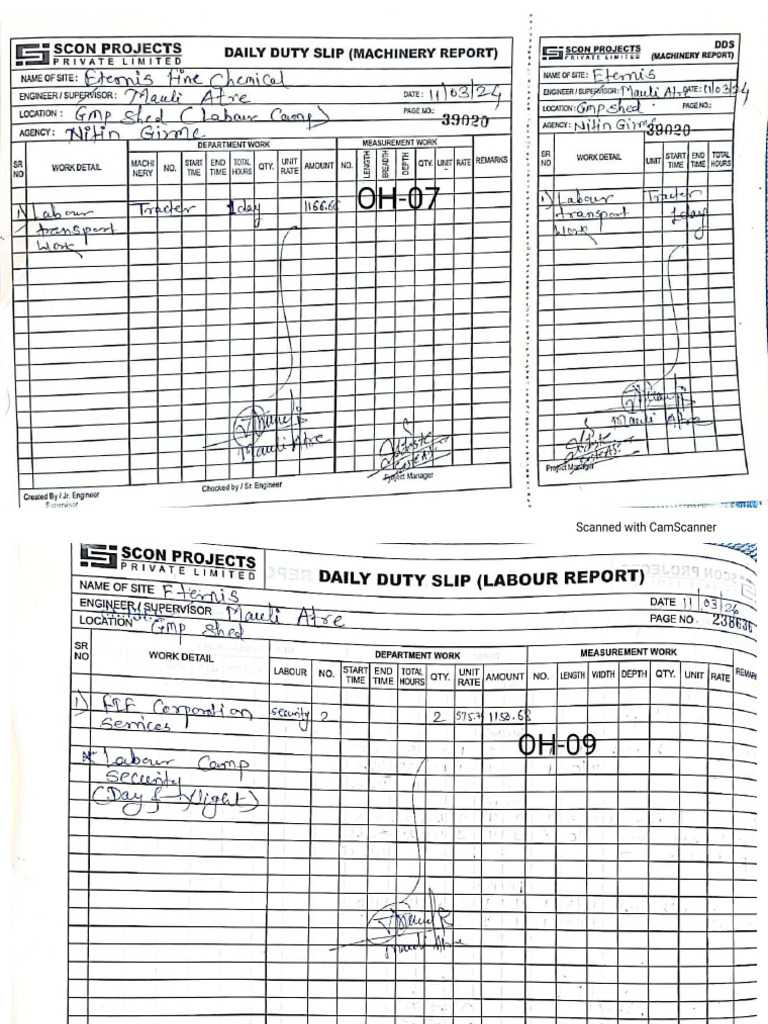 SCON PROJECTS
PRIVATE LIMITED
DAILY DUTY SLIP (MACHINERY REPORT)
NAME OF SITE : Eternis Fine Chemical
ENGINEER / SUPERVISOR : Mauli Atre DATE : 11/03/24
LOCATION : GMP Shed (Labour Camp) PAGE NO.: 39020
AGENCY : Nitin Girme
DEPARTMENT WORK MEASUREMENT WORK
SR NO WORK DETAIL MACHINERY NO. START TIME END TIME TOTAL HOURS QTY. UNIT RATE AMOUNT NO. LENGTH BREADTH DEPTH QTY. UNIT RATE REMARKS
OH-07
1) Labour Tracter 1day 1166.66
transport
work
Mauli Atre
Created By / Jr. Engineer Checked by / Sr. Engineer Project Manager
Supervisor
SCON PROJECTS DDS
PRIVATE LIMITED (MACHINERY REPORT)
NAME OF SITE : Eternis
ENGINEER / SUPERVISOR: Mauli Atre DATE: 11/03/24
LOCATION : GMP shed PAGE NO.:
AGENCY : Nitin Girme 39020
SR NO WORK DETAIL UNIT START TIME END TIME TOTAL HOURS
1) Labour Tracter
transport 1day
work
Mauli Atre
Project Manager
Scanned with CamScanner
SCON PROJECTS
PRIVATE LIMITED
DAILY DUTY SLIP (LABOUR REPORT)
NAME OF SITE Eternis
ENGINEER / SUPERVISOR Mauli Atre DATE 11/03/24
LOCATION GMP Shed PAGE NO 238636
SR NO WORK DETAIL DEPARTMENT WORK MEASUREMENT WORK
LABOUR NO. START TIME END TIME TOTAL HOURS QTY. UNIT RATE AMOUNT NO. LENGTH WIDTH DEPTH QTY. UNIT RATE REMARK
1) Corporation security 2 2 575.3 1150.68
Services
OH-09
* Labour Camp
security
(Day & Night)
Mauli Atre